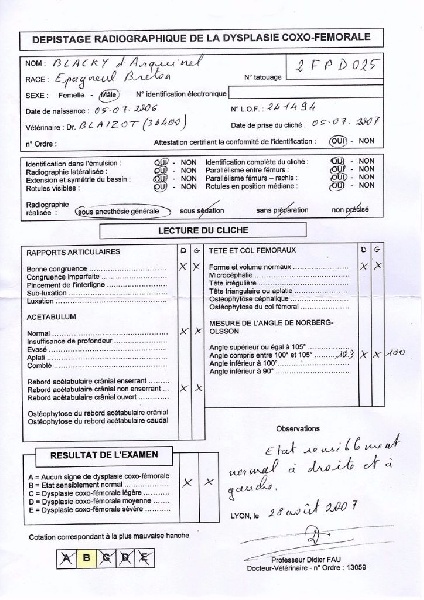 DEPISTAGE RADIOGRAPHIQUE DE LA DYSPLASIE COXO-FEMORALE
NOM : BLACKY d'
RACE : Epagneul Breton N° tatouage 2FPD025
SEXE : Femelle - Mâle N° identification électronique
Date de naissance : 05-07-2006 N° L.O.F. : 241494
Vétérinaire : Dr. BLAIZOT (38400) Date de prise du cliché : 05-07-2007
n° Ordre : Attestation certifiant la conformité de l'identification : OUI - NON
Identification dans l'émulsion : OUI - NON Identification complète du cliché : OUI - NON
Radiographie latéralisée : OUI - NON Parallélisme entre fémurs : OUI - NON
Extension et symétrie du bassin : OUI - NON Parallélisme fémurs – rachis : OUI - NON
Rotules visibles : OUI - NON Rotules en position médiane : OUI - NON
Radiographie
réalisée : sous anesthésie générale sous sédation sans préparation non précisé
LECTURE DU CLICHE
RAPPORTS ARTICULAIRES D G
Bonne congruence X X
Congruence imparfaite
Pincement de l'interligne
Sub-luxation
Luxation
ACETABULUM
Normal X X
Insuffisance de profondeur
Evasé
Aplati
Comblé
Rebord acétabulaire crânial enserrant
Rebord acétabulaire crânial non enserrant X X
Rebord acétabulaire crânial ouvert
Ostéophytose du rebord acétabulaire crânial
Ostéophytose du rebord acétabulaire caudal
TETE ET COL FEMORAUX D G
Forme et volume normaux X X
Microcéphalie
Tête irrégulière
Tête triangulaire ou aplatie
Ostéophytose céphalique
Ostéophytose du col fémoral
MESURE DE L'ANGLE DE NORBERG-
OLSSON
Angle supérieur ou égal à 105°
Angle compris entre 100° et 105° 103 X X 100
Angle inférieur à 100°
Angle inférieur à 90°
Observations
Etat sensiblement
normal à droite et à
gauche.
RESULTAT DE L'EXAMEN
A = Aucun signe de dysplasie coxo-fémorale
B = Etat sensiblement normal X X
C = Dysplasie coxo-fémorale légère
D = Dysplasie coxo-fémorale moyenne
E = Dysplasie coxo-fémorale sévère
LYON, le 28 août 2007
Cotation correspondant à la plus mauvaise hanche
A B C D E
Professeur Didier FAU
Docteur-Vétérinaire - n° Ordre : 13059